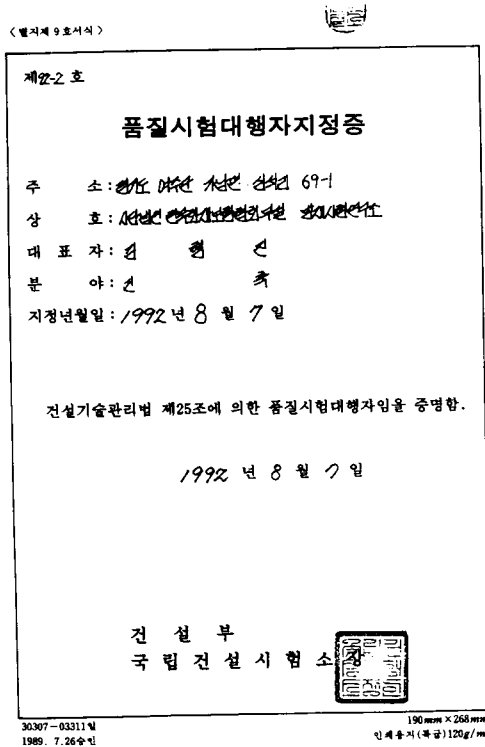 〈별지제 9 호서식〉
제92-2 호
품질시험대행자지정증
주 소 : 경기도 여주군 가남면 심석리 69-1
상 호 : 사단법인
대 표 자 :
분 야 : 건 축
지정년월일 : 1992 년 8 월 7 일
건설기술관리법 제25조에 의한 품질시험대행자임을 증명함.
1992 년 8 월 7 일
건 설 부
국 립 건 설 시 험 소 장
30307-03311일
1989. 7.26승인
190mm×268mm
인쇄용지(특급)120g/m